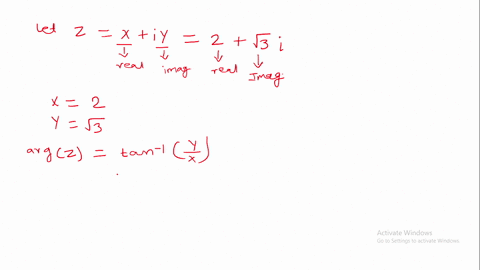 Let Z = x + iy = 2 + √3 i
real imag real Imag
x = 2
Y = √3
arg(z) = tan⁻¹(Y/x)
Activate Windows
Go to Settings to activate Windows.